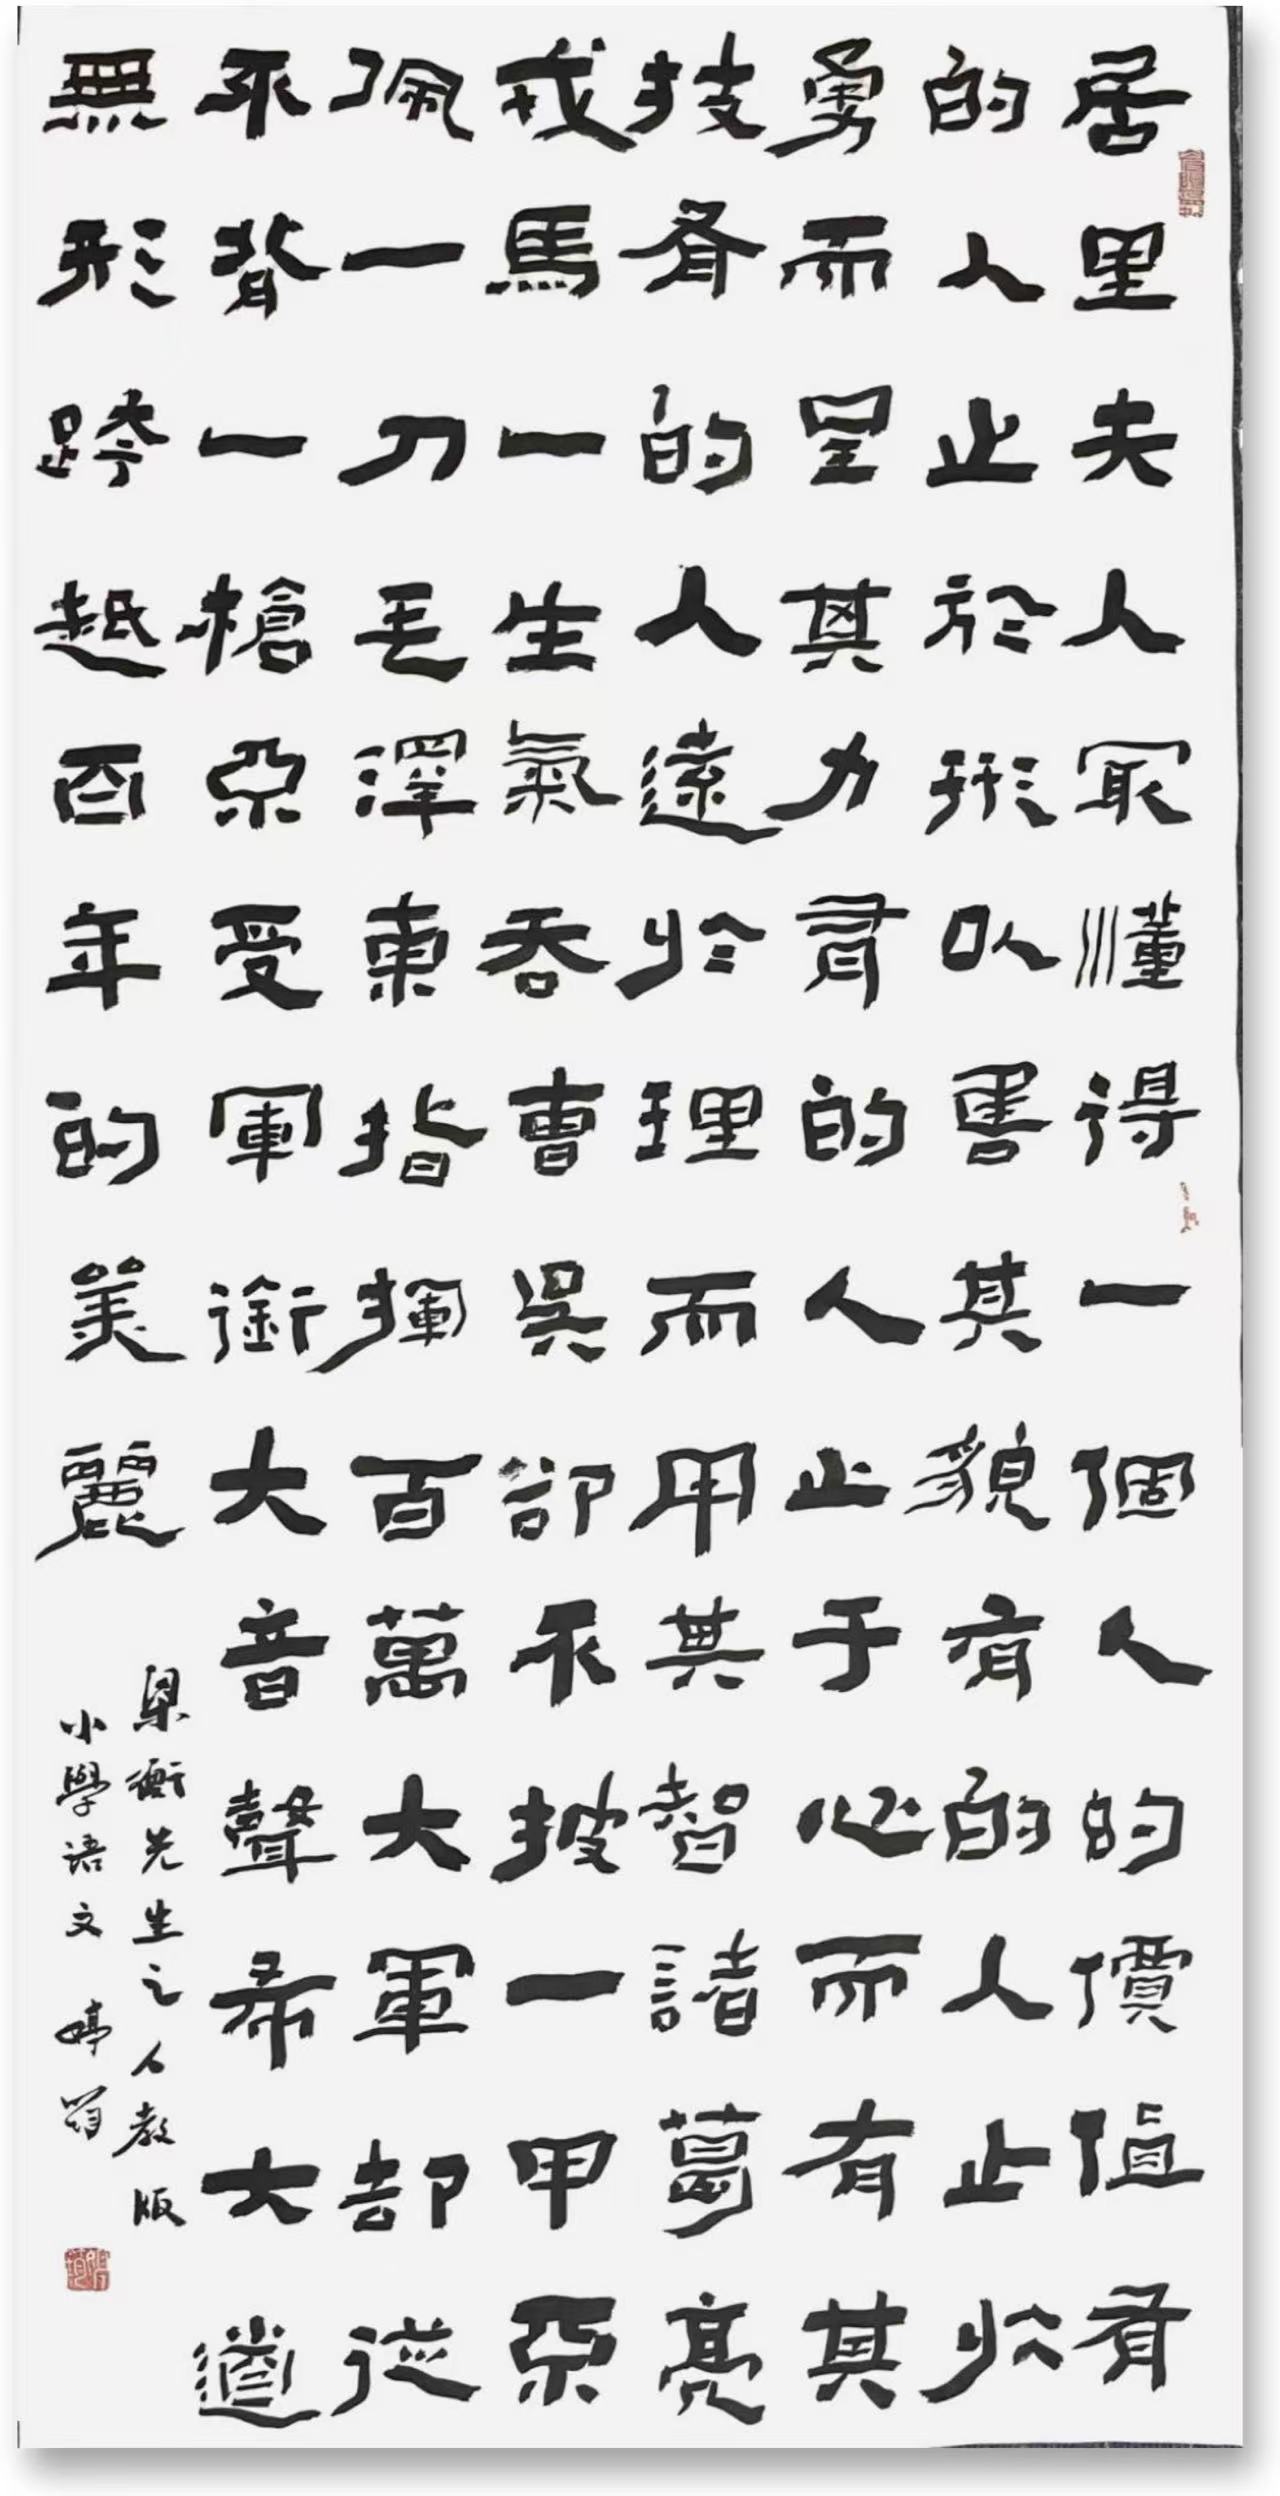 居里夫人冣懂得一個人的價值有
的人止於形以售其貌有的人止於
勇而呈其力有的人止于心而有其
技有的人遠於理而用其智諸葛亮
戎馬一生氣吞曹吳卻不披一甲亞
佩一刀毛澤東指揮百萬大軍却從
不背一槍亞受軍銜大音聲希大道
無形跨越百年的美麗
梁衡先生之人教版
小學語文 婷